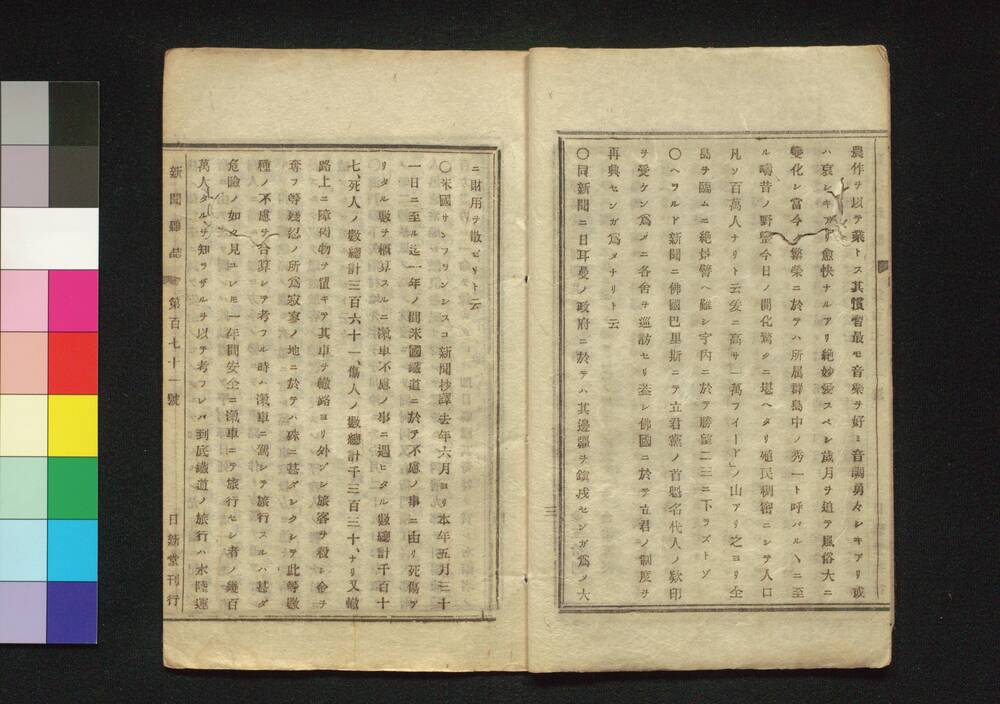 農作ヲ以テ業トス其慣習最モ音樂ヲ好ミ音調勇々シキアリ或
ハ哀シキアリ愈快ナルアリ絶妙愛スベシ歳月ヲ追テ風俗大ニ
變化シ當今ノ繁榮ニ於テハ所属群島中ノ秀一ト呼バルヽニ至
ル疇昔ノ野蠻今日ノ開化驚クニ堪ヘタリ殖民稠密ニシテ人口
凡ソ百萬人ナリト云爰ニ高サ一萬フイード」ノ山アリ之ヨリ全
島ヲ臨ムニ絶妙譬ヘ難シ宇内ニ於テ勝留二三ニ下ラズトゾ
〇ヘラルド新聞ニ佛國巴里斯ニテ立君黨ノ首魁名代人ノ歎印
ヲ受ケン爲メニ各舍ヲ巡訪セリ盖シ佛國ニ於テ立君ノ制度ヲ
再興センガ爲メナリト云
〇同新聞ニ日耳曼ノ政府ニ於テハ其邊疆ヲ鎮戍センガ爲メ大
三
ニ財用ヲ散ゼリト云
〇米國サンフリンシスコ新聞抄譯去年六月ヨリ本年五月三十
一日ニ至ル迄一年ノ間米國鐵道ニ於テ不慮ノ事ニ由リ死傷ア
リタル數ヲ概算スルニ滊車不慮ノ事ニ遇ヒタル數總計千百十
七、死人ノ數總計三百六十一、傷人ノ數總計千三百三十、ナリ又轍
路上ニ障碍物ヲ置キテ其車ヲ轍路ヨリ外シ旅客ヲ殺シ金ヲ
奪フ等殘忍ノ所爲寂寥ノ地ニ於テハ殊ニ甚ダシクシテ此等數
種ノ不慮ヲ合算シテ考フル時ハ滊車ニ駕シテ旅行スルハ甚ダ
危險ノ如ク見ユレモ一年間安全ニ滊車ニテ旅行セシ者ノ幾百
萬人タルヲ知ラザルヲ以テ考フレバ到底鐵道ノ旅行ハ水陸運
新聞雜誌 第百七十一號 日新堂刊行